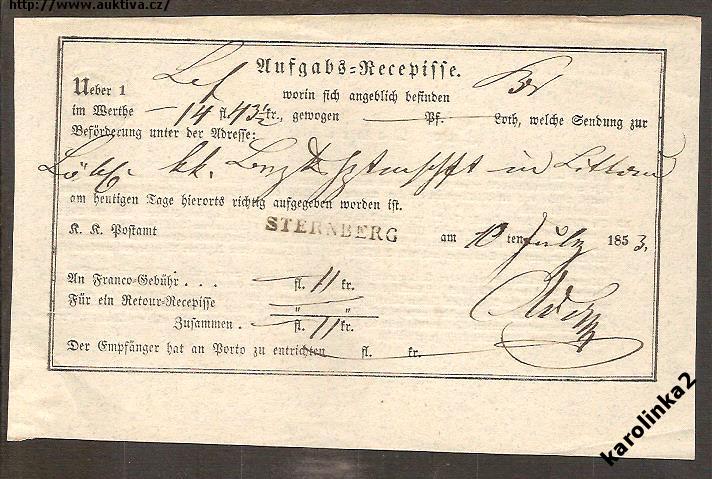 http://www.auktiva.cz/
Aufgabs-Recepisse.
Ueber 1
worin sich angeblich befinden
im Werthe — 14 fl. 43 kr., gewogen Pf. Loth, welche Sendung zur
Beförderung unter der Adresse:
Löbl. kk. in Littau
am heutigen Tage hierorts richtig aufgegeben worden ist.
K. K. Postamt STERNBERG am 10 ten July 1853.
An Franco-Gebühr . . . fl. 11 kr.
Für ein Retour-Recepisse " "
Zusammen . fl. 11 kr.
Der Empfänger hat an Porto zu entrichten fl. kr.
karolinka2